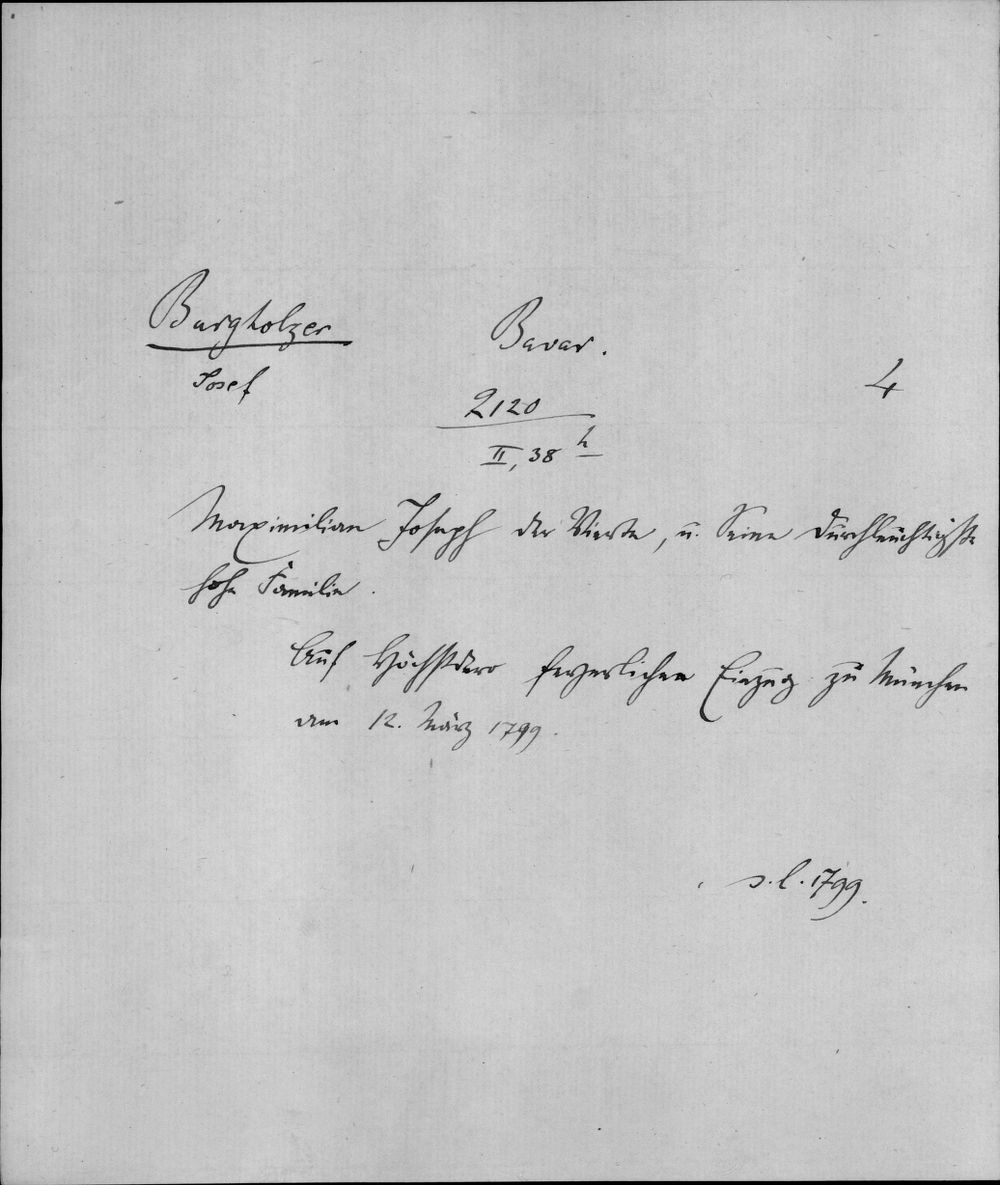 Burgholzer
Josef
Bavar.
4
2120
II, 38 h
Maximilian Joseph der Vierte, u. Seine durchleuchtigste
hohe Familie.
Auf Höchstdero feyerlichen Einzug zu München
am 12. März 1799.
s. l. 1799.